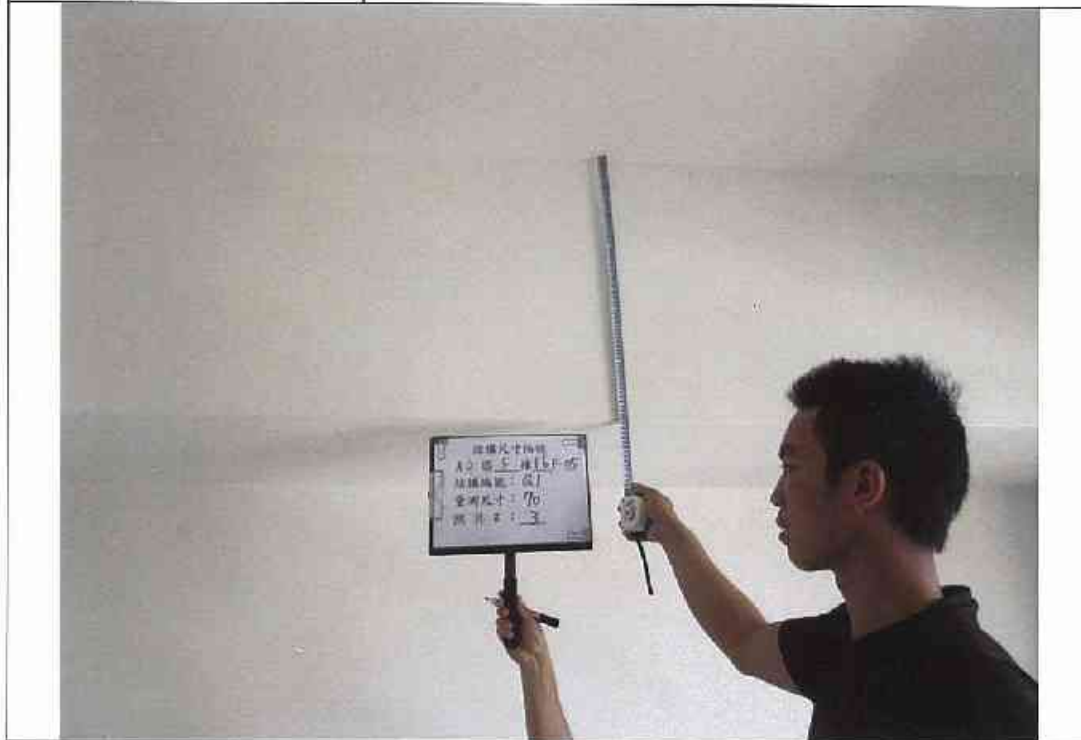 結構尺寸抽驗
A2 區 5 棟 16F-05
結構編號：G1
量測尺寸：70
照片 #：3